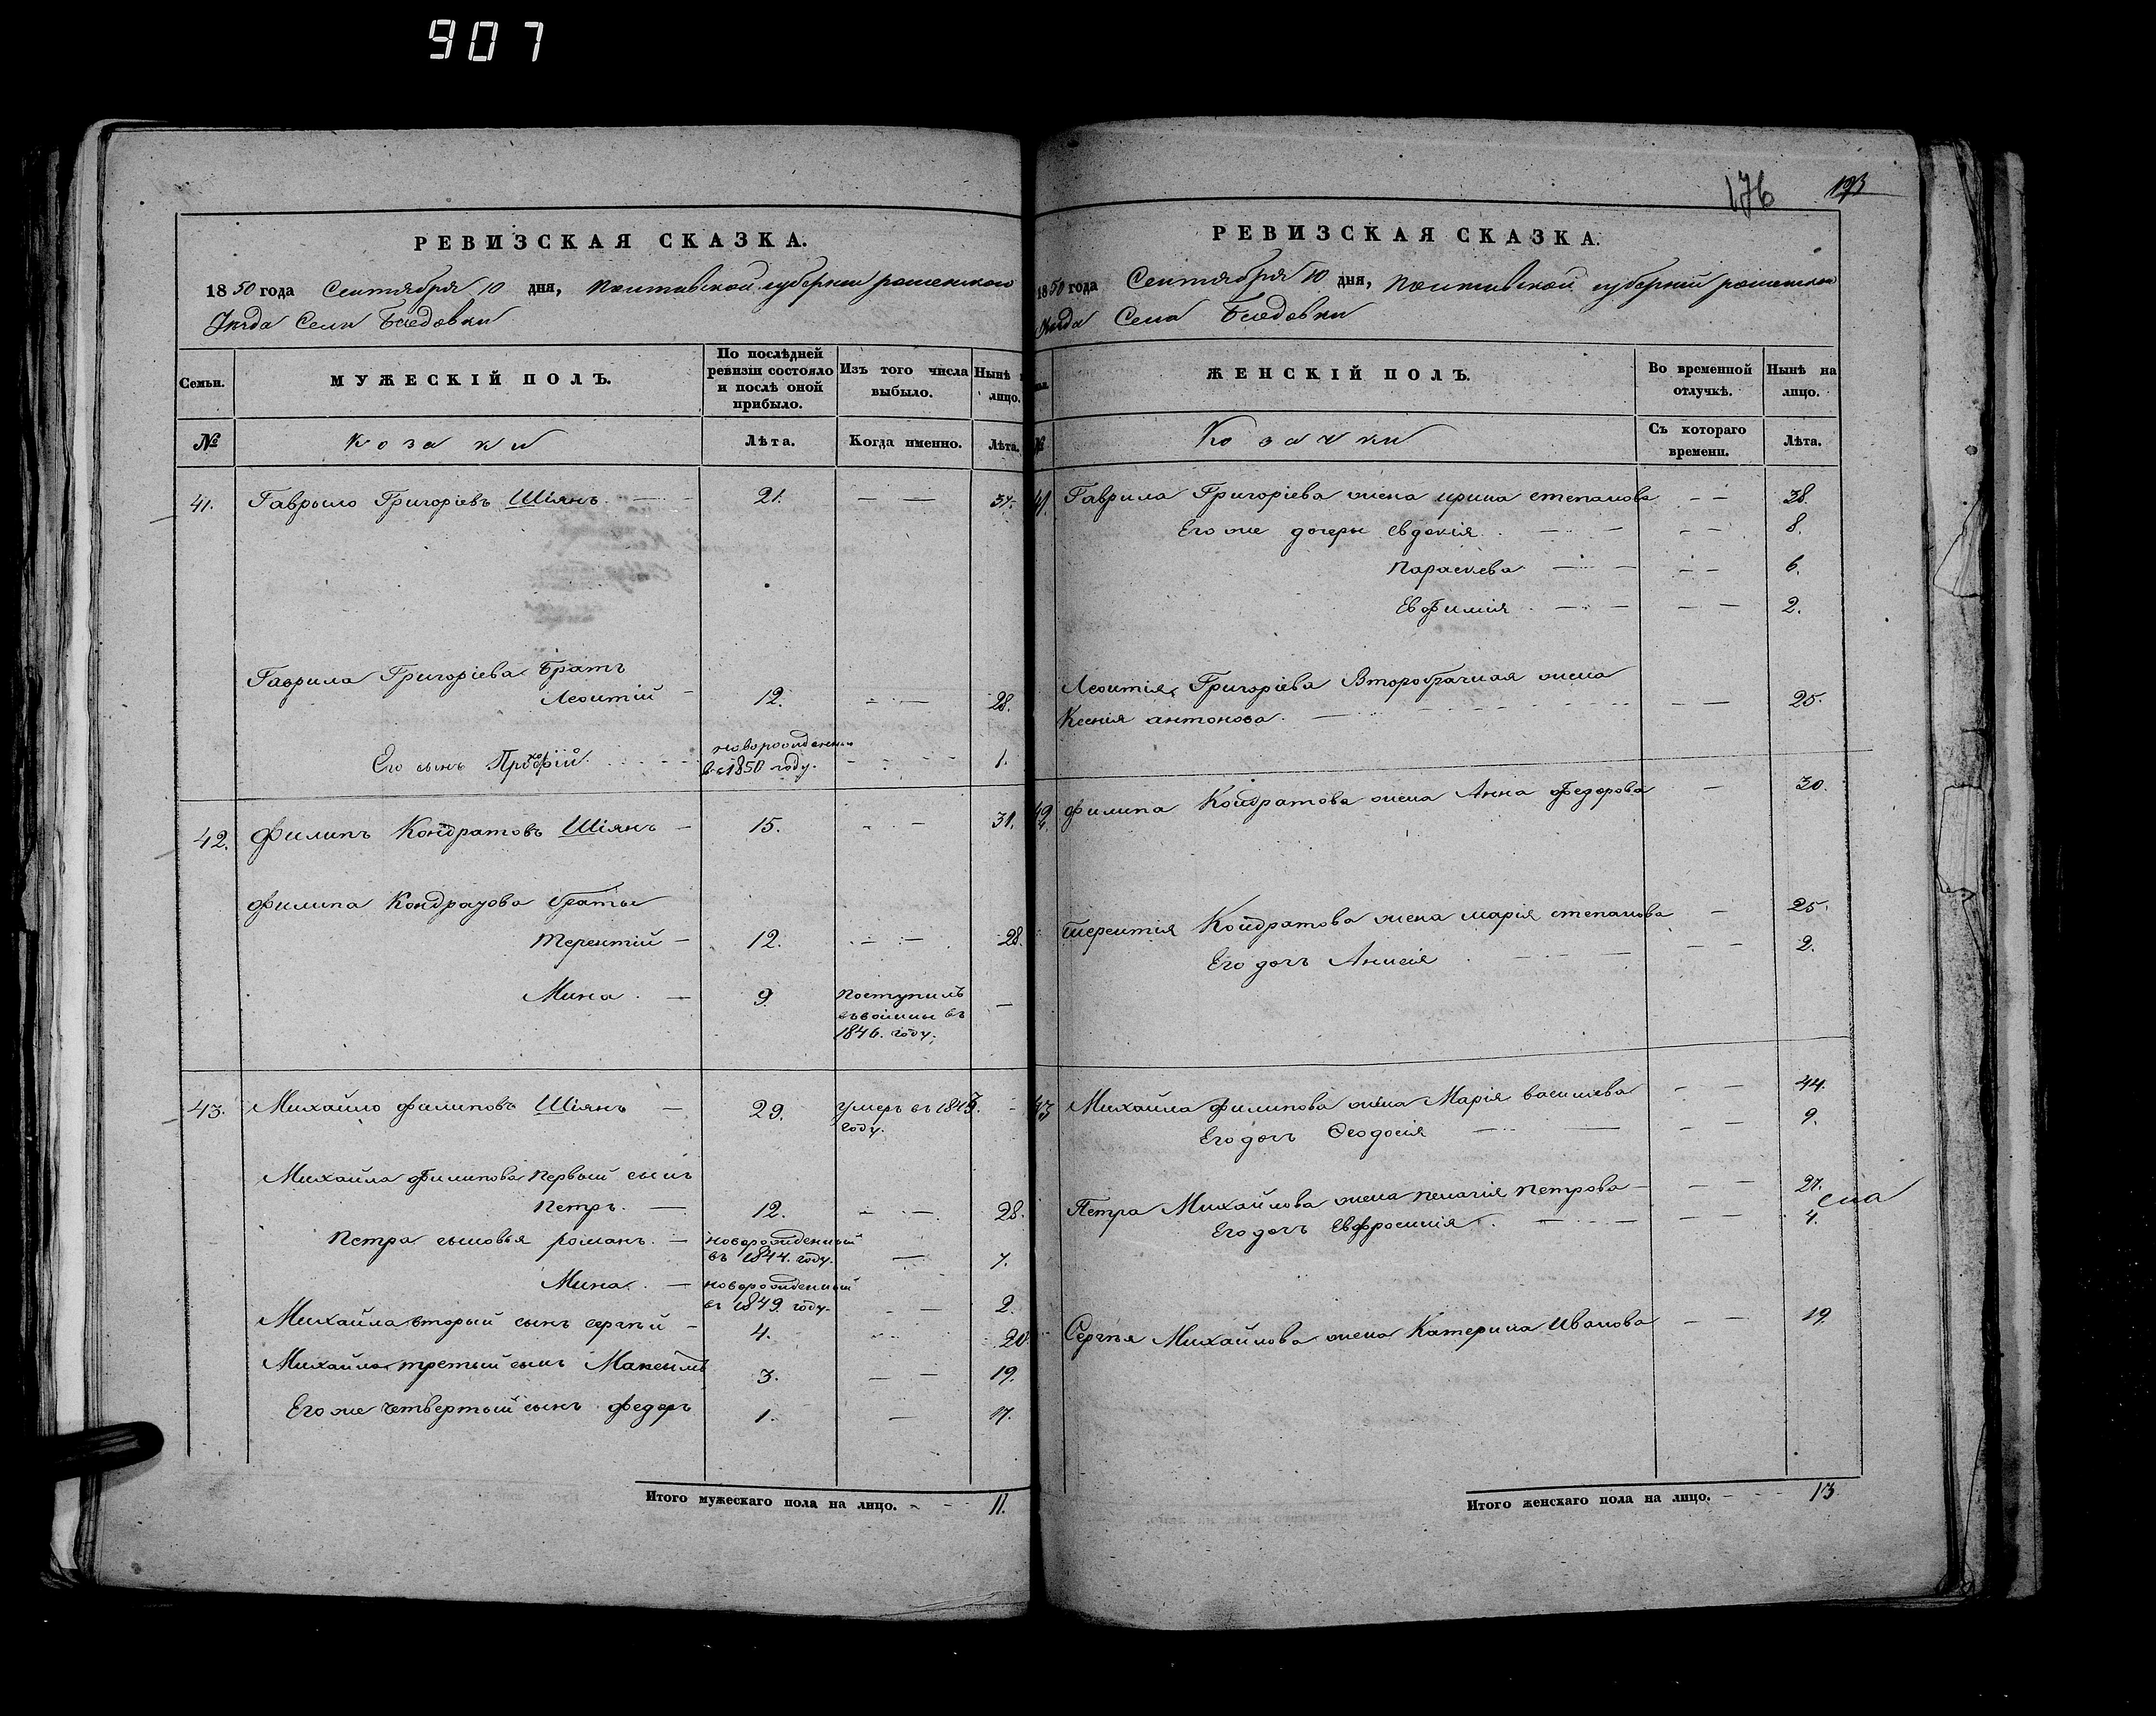 907
РЕВИЗСКАЯ СКАЗКА.
1850 года Сентября 10 дня, Полтавской губернии роменского
Уезда Села Беседовки
Семьи.
МУЖЕСКІЙ ПОЛЪ.
По послѣдней ревизіи состояло и послѣ оной прибыло.
Изъ того числа выбыло.
Нынѣ лицо.
№
Козаки
Лѣта.
Когда именно.
Лѣта.
41. Гаврыло Григоріевъ Шіянъ — 21. — — 37.
Гаврила Григоріева братъ
Леонтій — 12. — — 28.
Его сынъ Прокофій новорожденный — — 1.
в 1850 году.
42. Филипъ Кондратовъ Шіянъ — 15. — — 31.
Филипа Кондратова браты
Терентій — 12. — — 28.
Мина — 9. поступилъ —
въ воины въ
1846. году.
43. Михайло филиповъ Шіянъ — 29. умеръ въ —
году.
Михайла Филипова первый сынъ
Петръ. — 12. — — 28.
Петра сыновья романъ. — новорожденный
въ 1844. году. — 7.
Мина. — новорожденный
въ 1849. году. — — 2.
Михайла вторый сынъ сергѣй — 4. — — 20.
Михайла третый сынъ Максимъ 3. — — 19.
Его же четвертый сынъ федоръ 1. — 17.
Итого мужескаго пола на лицо. — — 11.
176 173
РЕВИЗСКАЯ СКАЗКА.
1850 года Сентября 10 дня, Полтавской губерніи роменского
Уезда Села Беседовки
ЖЕНСКІЙ ПОЛЪ.
Во временной отлучкѣ.
Нынѣ на лицо.
№
Козачки
Съ котораго времени.
Лѣта.
41. Гаврила Григоріева жена ирина степанова — — 38.
Его же дочеры евдокія — — — 8.
Параскева — — — 6.
Евфимія — — — 2.
Леонтія Григоріева Второбрачная жена
Ксенія антонова. — — — 25.
42 Филипа Кондратова жена Анна федорова — 30.
терентія Кондратова жена марія степанова — 25.
Его дочъ Анисія — — — 2.
43 Михайла филипова жена Марія василиева — — 44.
Его дочъ Феодосія — — — 9.
Петра Михайлова жена пелагія петрова — — 27.
Его дочъ Евфросинія — — — 4.
Сергѣя Михайлова жена Катерина иванова — — 19.
Итого женскаго пола на лицо. — — — 13